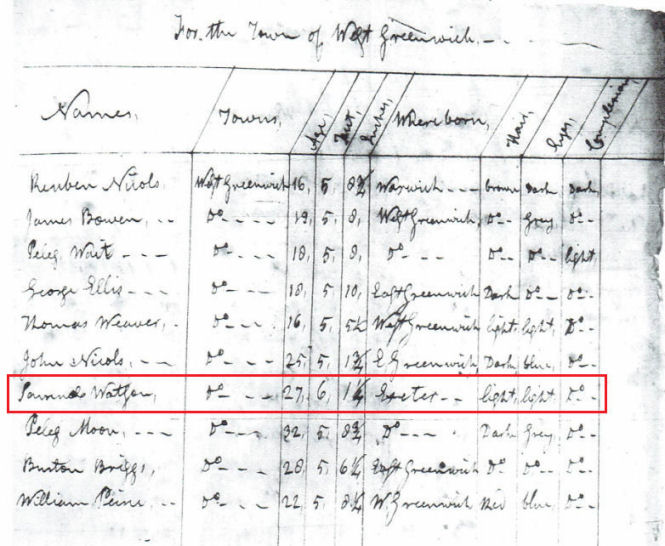 For the Town of West Greenwich, - -
Names, Towns, Age, Feet, Inches, Where born, Hair, Eyes, Complexion
Reuben Nicols West Greenwich 16, 5, 8¾ Warwick - - - brown Dark Dark,
James Bowen, - - Do - - - - 19, 5, 8, West Greenwich, Do - Gray Do - -
Peleg Wait - - - Do - - - 18, 5, 8, Do - - - Do - Do - light,
George Ellis - - - Do - - - 18, 5, 10, East Greenwich Dark Do - - Do - -
Thomas Weaver, - Do - - - 16, 5, 5½ West Greenwich light, light, Do -
John Nicols, - - - Do - - - 25, 5, 1¾ E Greenwich, Dark blue, Do - -
Samuel Watson, Do - - - 27, 6, 1½ Exeter - - light, light, Do - -
Peleg Moon, - - - Do - - - 22, 5, 8¾ Do - - - Dark Grey, Do - -
Burton Briggs, Do - - - 28, 5, 6½ East Greenwich Do Do - - Do - -
William - - Do - - - 22, 5, W. Greenwich Red blue, Do - -